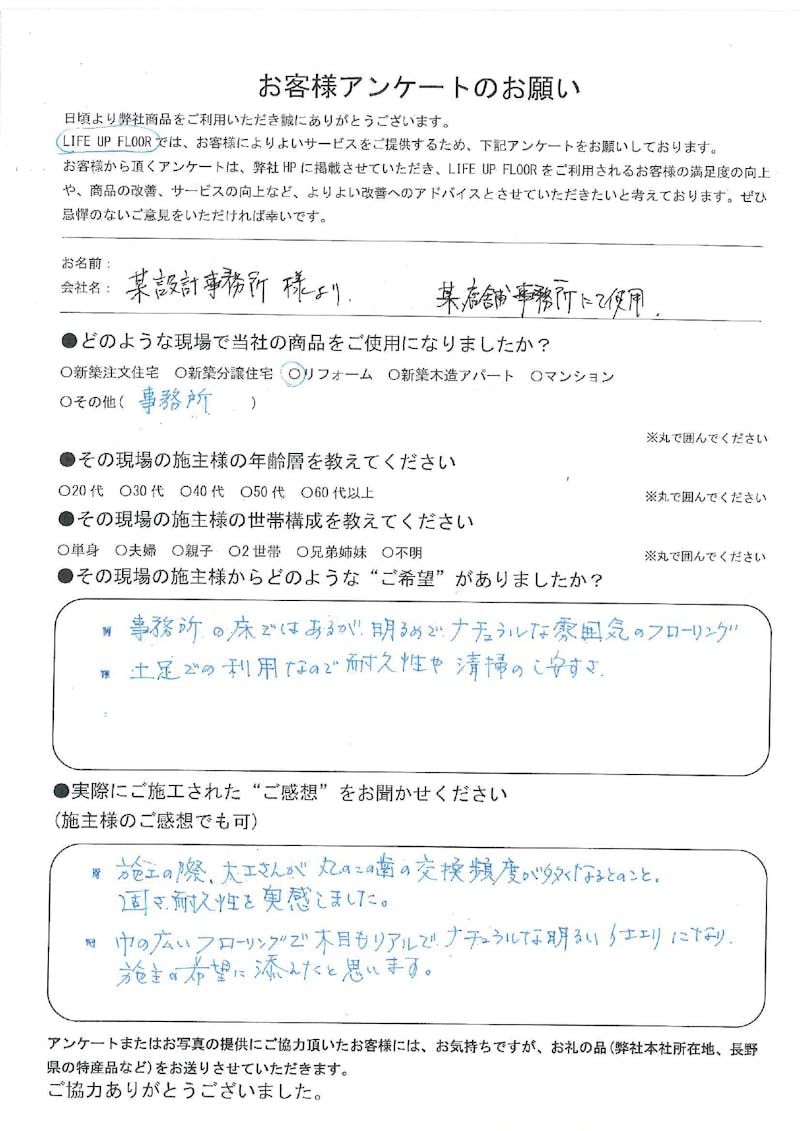 お客様アンケートのお願い
日頃より弊社商品をご利用いただき誠にありがとうございます。
LIFE UP FLOORでは、お客様によりよいサービスをご提供するため、下記アンケートをお願いしております。
お客様から頂くアンケートは、弊社HPに掲載させていただき、LIFE UP FLOORをご利用されるお客様の満足度の向上
や、商品の改善、サービスの向上など、よりよい改善へのアドバイスとさせていただきたいと考えております。ぜひ
忌憚のないご意見をいただければ幸いです。
お名前：
会社名： 某設計事務所 様より. 某店舗事務所にて使用.
●どのような現場で当社の商品をご使用になりましたか？
○新築注文住宅 ○新築分譲住宅 ○リフォーム ○新築木造アパート ○マンション
○その他( 事務所 )
※丸で囲んでください
●その現場の施主様の年齢層を教えてください
○20代 ○30代 ○40代 ○50代 ○60代以上 ※丸で囲んでください
●その現場の施主様の世帯構成を教えてください
○単身 ○夫婦 ○親子 ○2世帯 ○兄弟姉妹 ○不明 ※丸で囲んでください
●その現場の施主様からどのような“ご希望”がありましたか？
事務所の床ではあるが、明るめで、ナチュラルな雰囲気のフローリング
土足での利用なので耐久性や清掃のし安すさ.
●実際にご施工された“ご感想”をお聞かせください
(施主様のご感想でも可)
施工の際、大工さんが丸のこの歯の交換頻度が多くなるとのこと。
固さ、耐久性を実感しました。
巾の広いフローリングで木目もリアルで、ナチュラルな明るい仕上りになり、
施主の希望に添えたと思います。
アンケートまたはお写真の提供にご協力頂いたお客様には、お気持ちですが、お礼の品(弊社本社所在地、長野
県の特産品など)をお送りさせていただきます。
ご協力ありがとうございました。